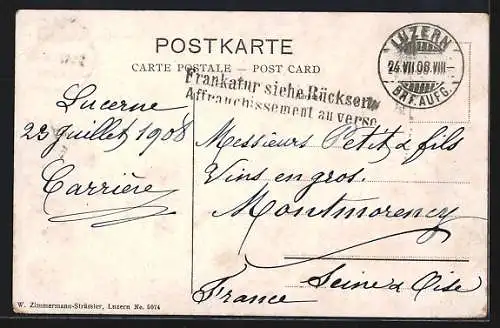 POSTKARTE
CARTE POSTALE — POST CARD
Frankatur siehe Rückseite
Affranchissement au verso
LUZERN
24.VII.08.VIII–
BRF.AUFG.
Lucerne
23 Juillet 1908
Carrière
Messieurs Petit & fils
Vins en gros.
Montmorency
Seine & Oise
France
W. Zimmermann-Strässler, Luzern No. 5074